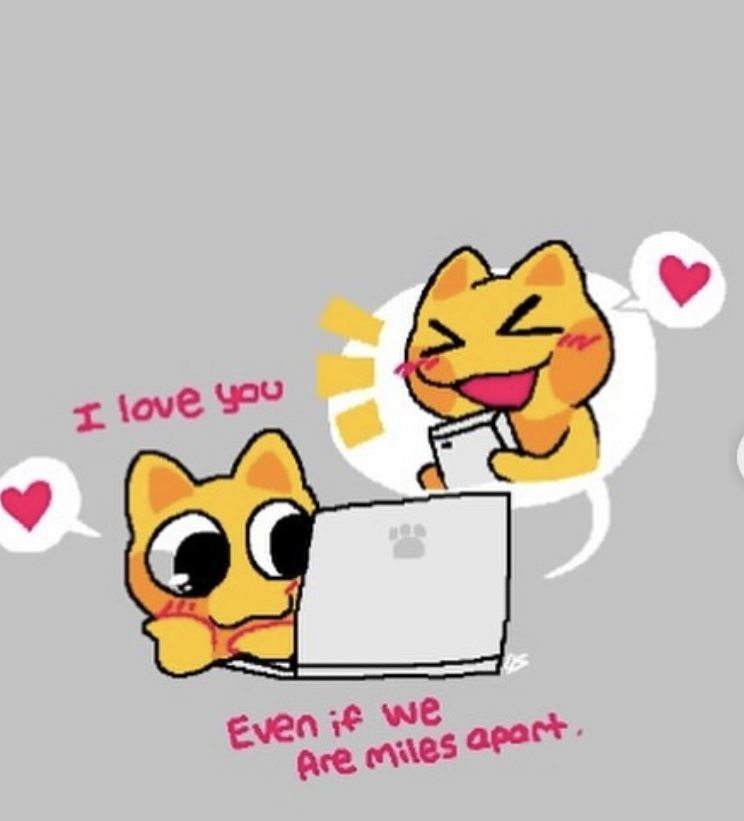 I love you
Even if we
Are miles apart.